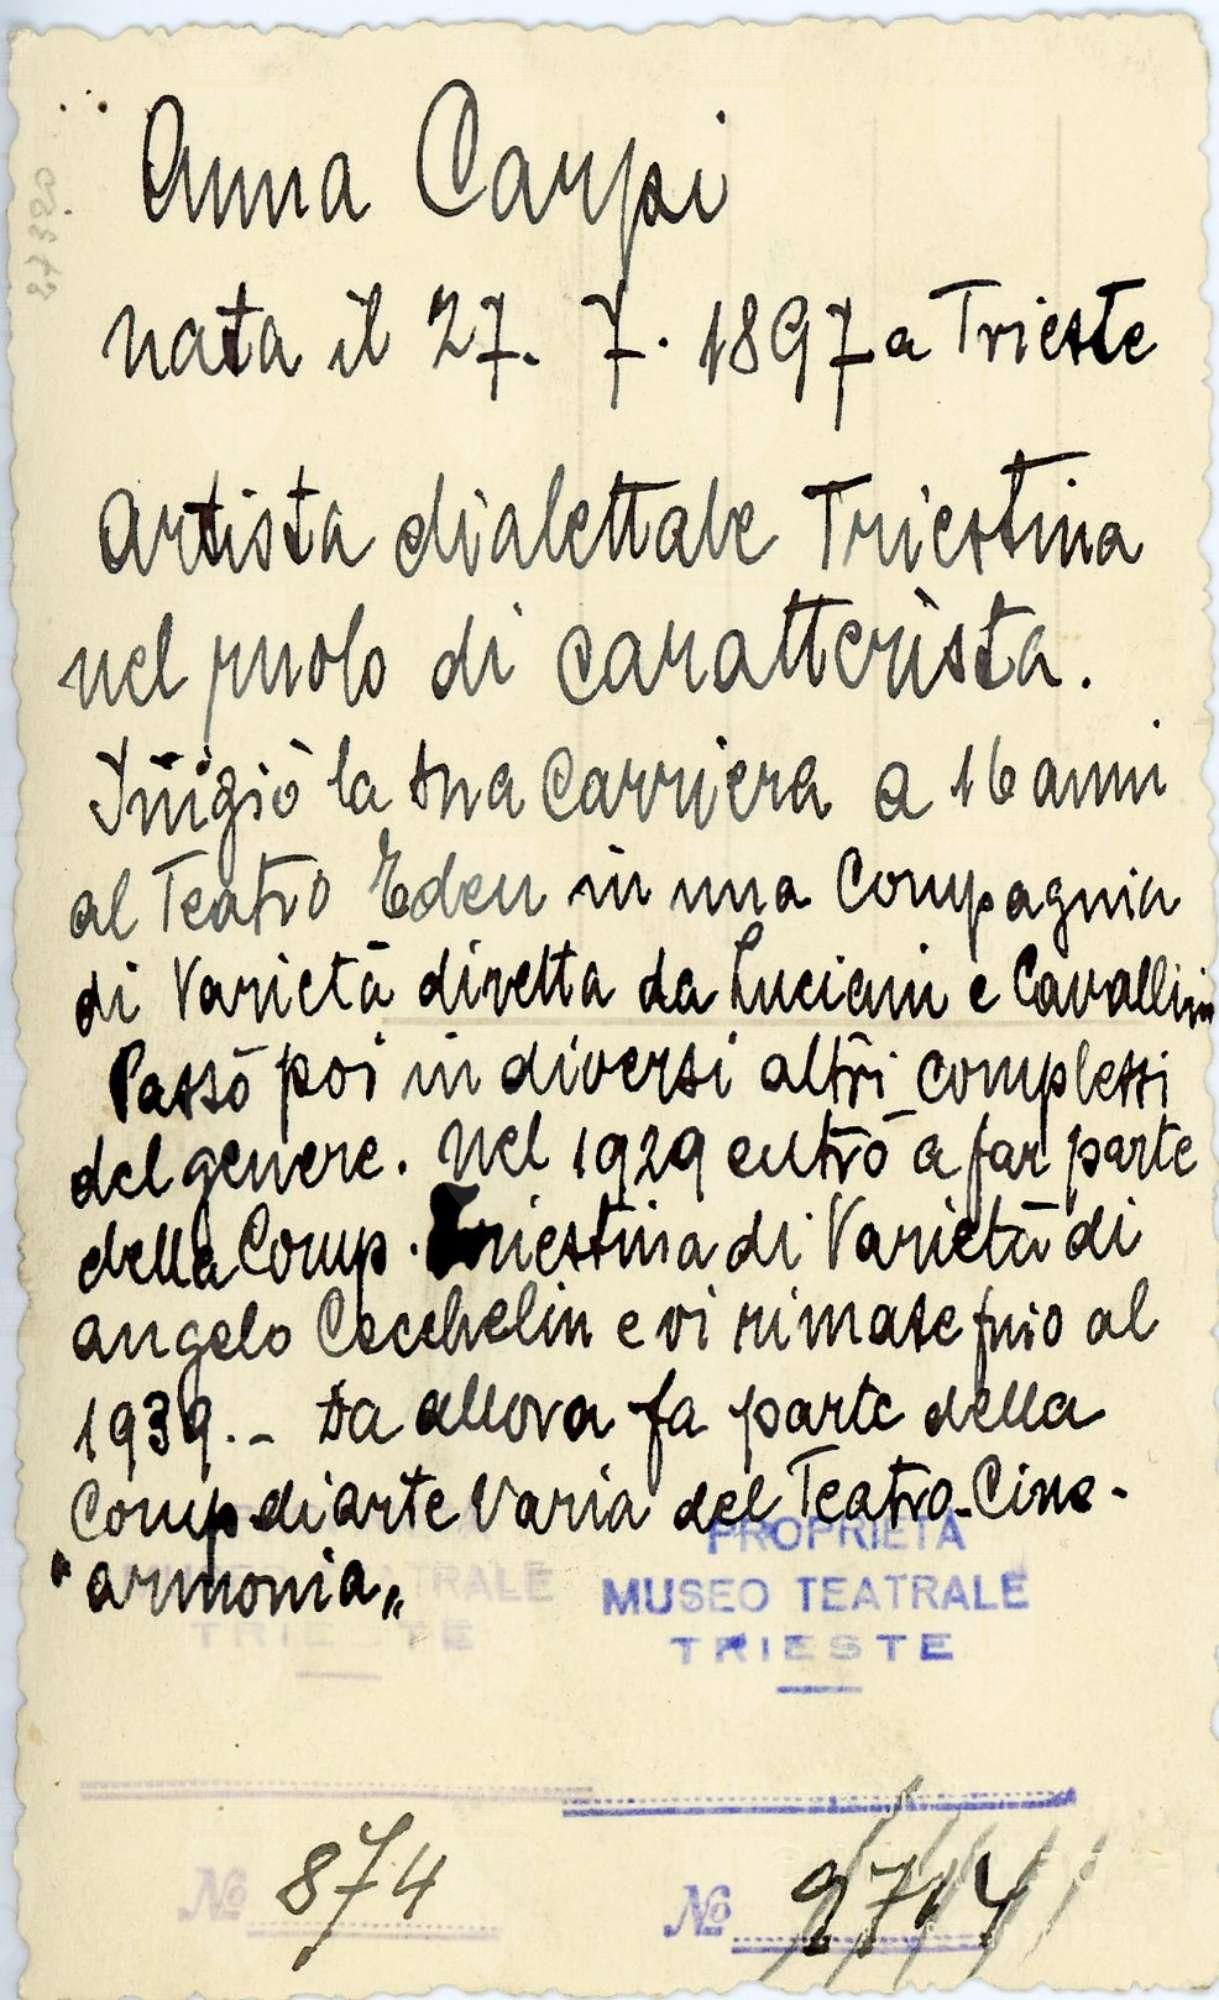 Anna Carpi
nata il 27. 7. 1897 a Trieste
Artista dialettale Triestina
nel ruolo di caratterista.
Iniziò la sua carriera a 16 anni
al Teatro Eden in una Compagnia
di Varietà diretta da Luciani e Cavallini
Passò poi in diversi altri complessi
del genere. Nel 1929 entrò a far parte
della Comp. Triestina di Varietà di
Angelo Cecchelin e vi rimase fino al
1939.- Da allora fa parte della
Comp. di arte Varia del Teatro-Cine-
"armonia"
PROPRIETÀ
MUSEO TEATRALE
TRIESTE
TEATRALE
TRIESTE
No 874
No
27320